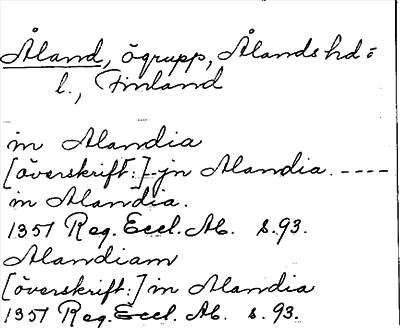 Åland, ögrupp, Ålands hd:
l., Finland
in Alandia
[överskrift:] jn Alandia. ----
in Alandia.
1351 Reg. Eccl. Ab. s. 93.
Alandiam
[överskrift:] in Alandia
1351 Reg. Eccl. Ab. s. 93.